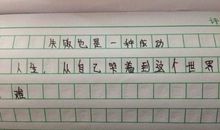 失败也是一种成功
人生，从自己哭着到这个世界
难